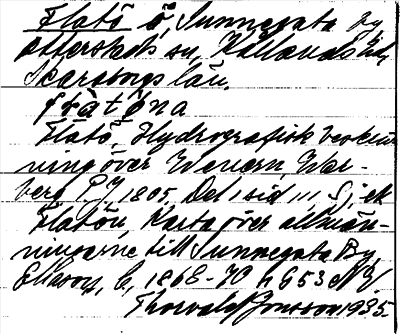 Flatö ö, Sunnegata by
Otterstads sn, Kållands hd,
Skaraborgs län.
fɷ̀tə́na
Flatö, Hydrografisk beskriv
ning över Wenern, War-
berg P. J, 1805, Del 1 sid 111 Sj. ek
Flatön, Karta över allmän-
ningarne till Sunnegata By,
Ellason, C, 1868-70 h G53 NY.
Thorvald Jonsson 1935.